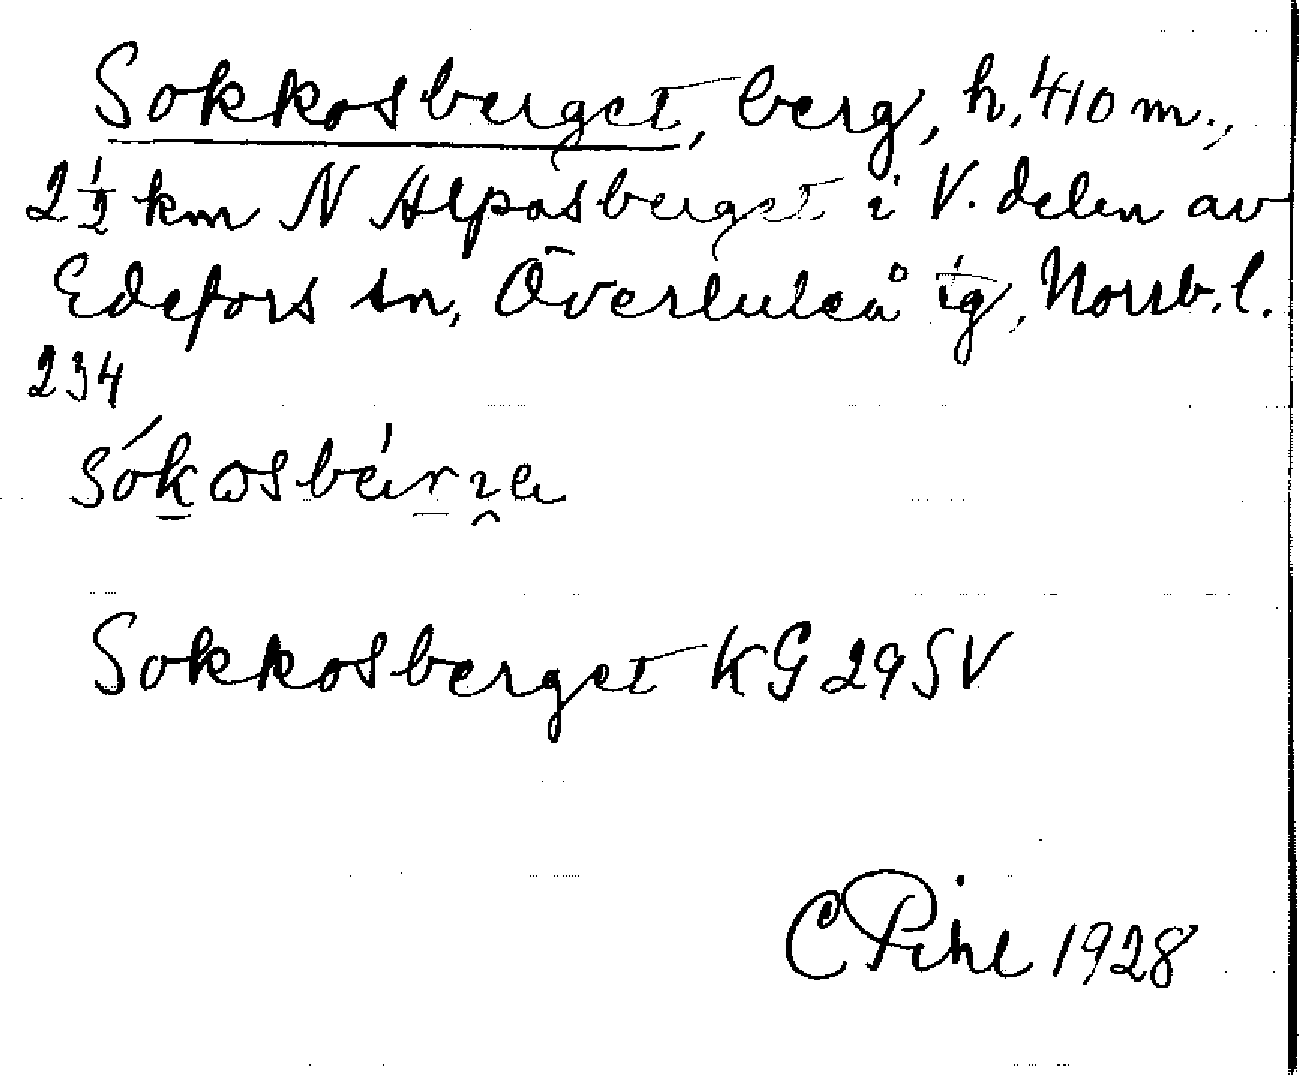 Sokkosberget, berg, h. 410 m.,
2½ km N Alpasberget i V. delen av
Edefors sn, Överluleå tg, Norrb. l.
234
Sokkosberget KG 29 SV
C Pihl 1928